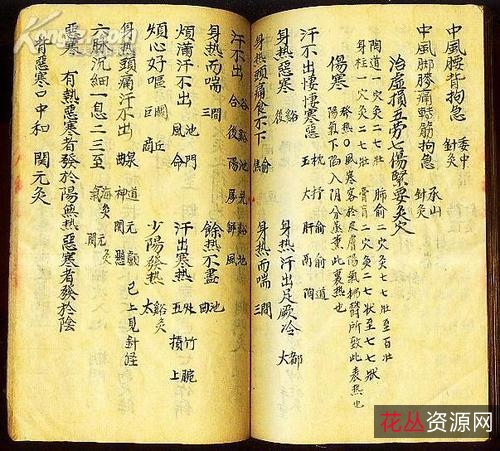 中風腰背拘急 委中 針灸
中風脚膝痛轉筋拘急 承山 針灸
治虛損五勞七傷緊要灸穴
陶道一穴灸二七壯 肺俞二穴灸七七壯至百壯
身柱一穴灸二七壯 膏肓二穴灸二七狀至七七狀
傷寒 發熱○風寒客於皮膚陽氣怫鬱所致此表熱也
陽氣下陷入陰分蒸熏此裏熱也
汗不出悽悽寒惡 玉枕 大杼 肝俞 膈俞 陶道
身熱惡寒 後谿 身熱汗出足厥冷 大都
身熱頭痛食不下 三焦俞 身熱而喘 三間
汗不出 合谷 後谿 陽池 厲兌 解谿 風池
身熱而喘 三間 餘熱不盡 曲池
煩滿汗不出 風池 命門 汗出寒熱 五處 攢竹 上腕
煩心好嘔 巨闕 商丘 少陽發熱 太谿灸
身熱頭痛汗不出 曲泉 神道 關元 懸顱 已上見針經
六脉沉細一息二三至 氣海灸 關元灸
惡寒 有熱惡寒者發於陽無熱惡寒者發於陰
背惡寒口中和 関元灸
花丛资源网